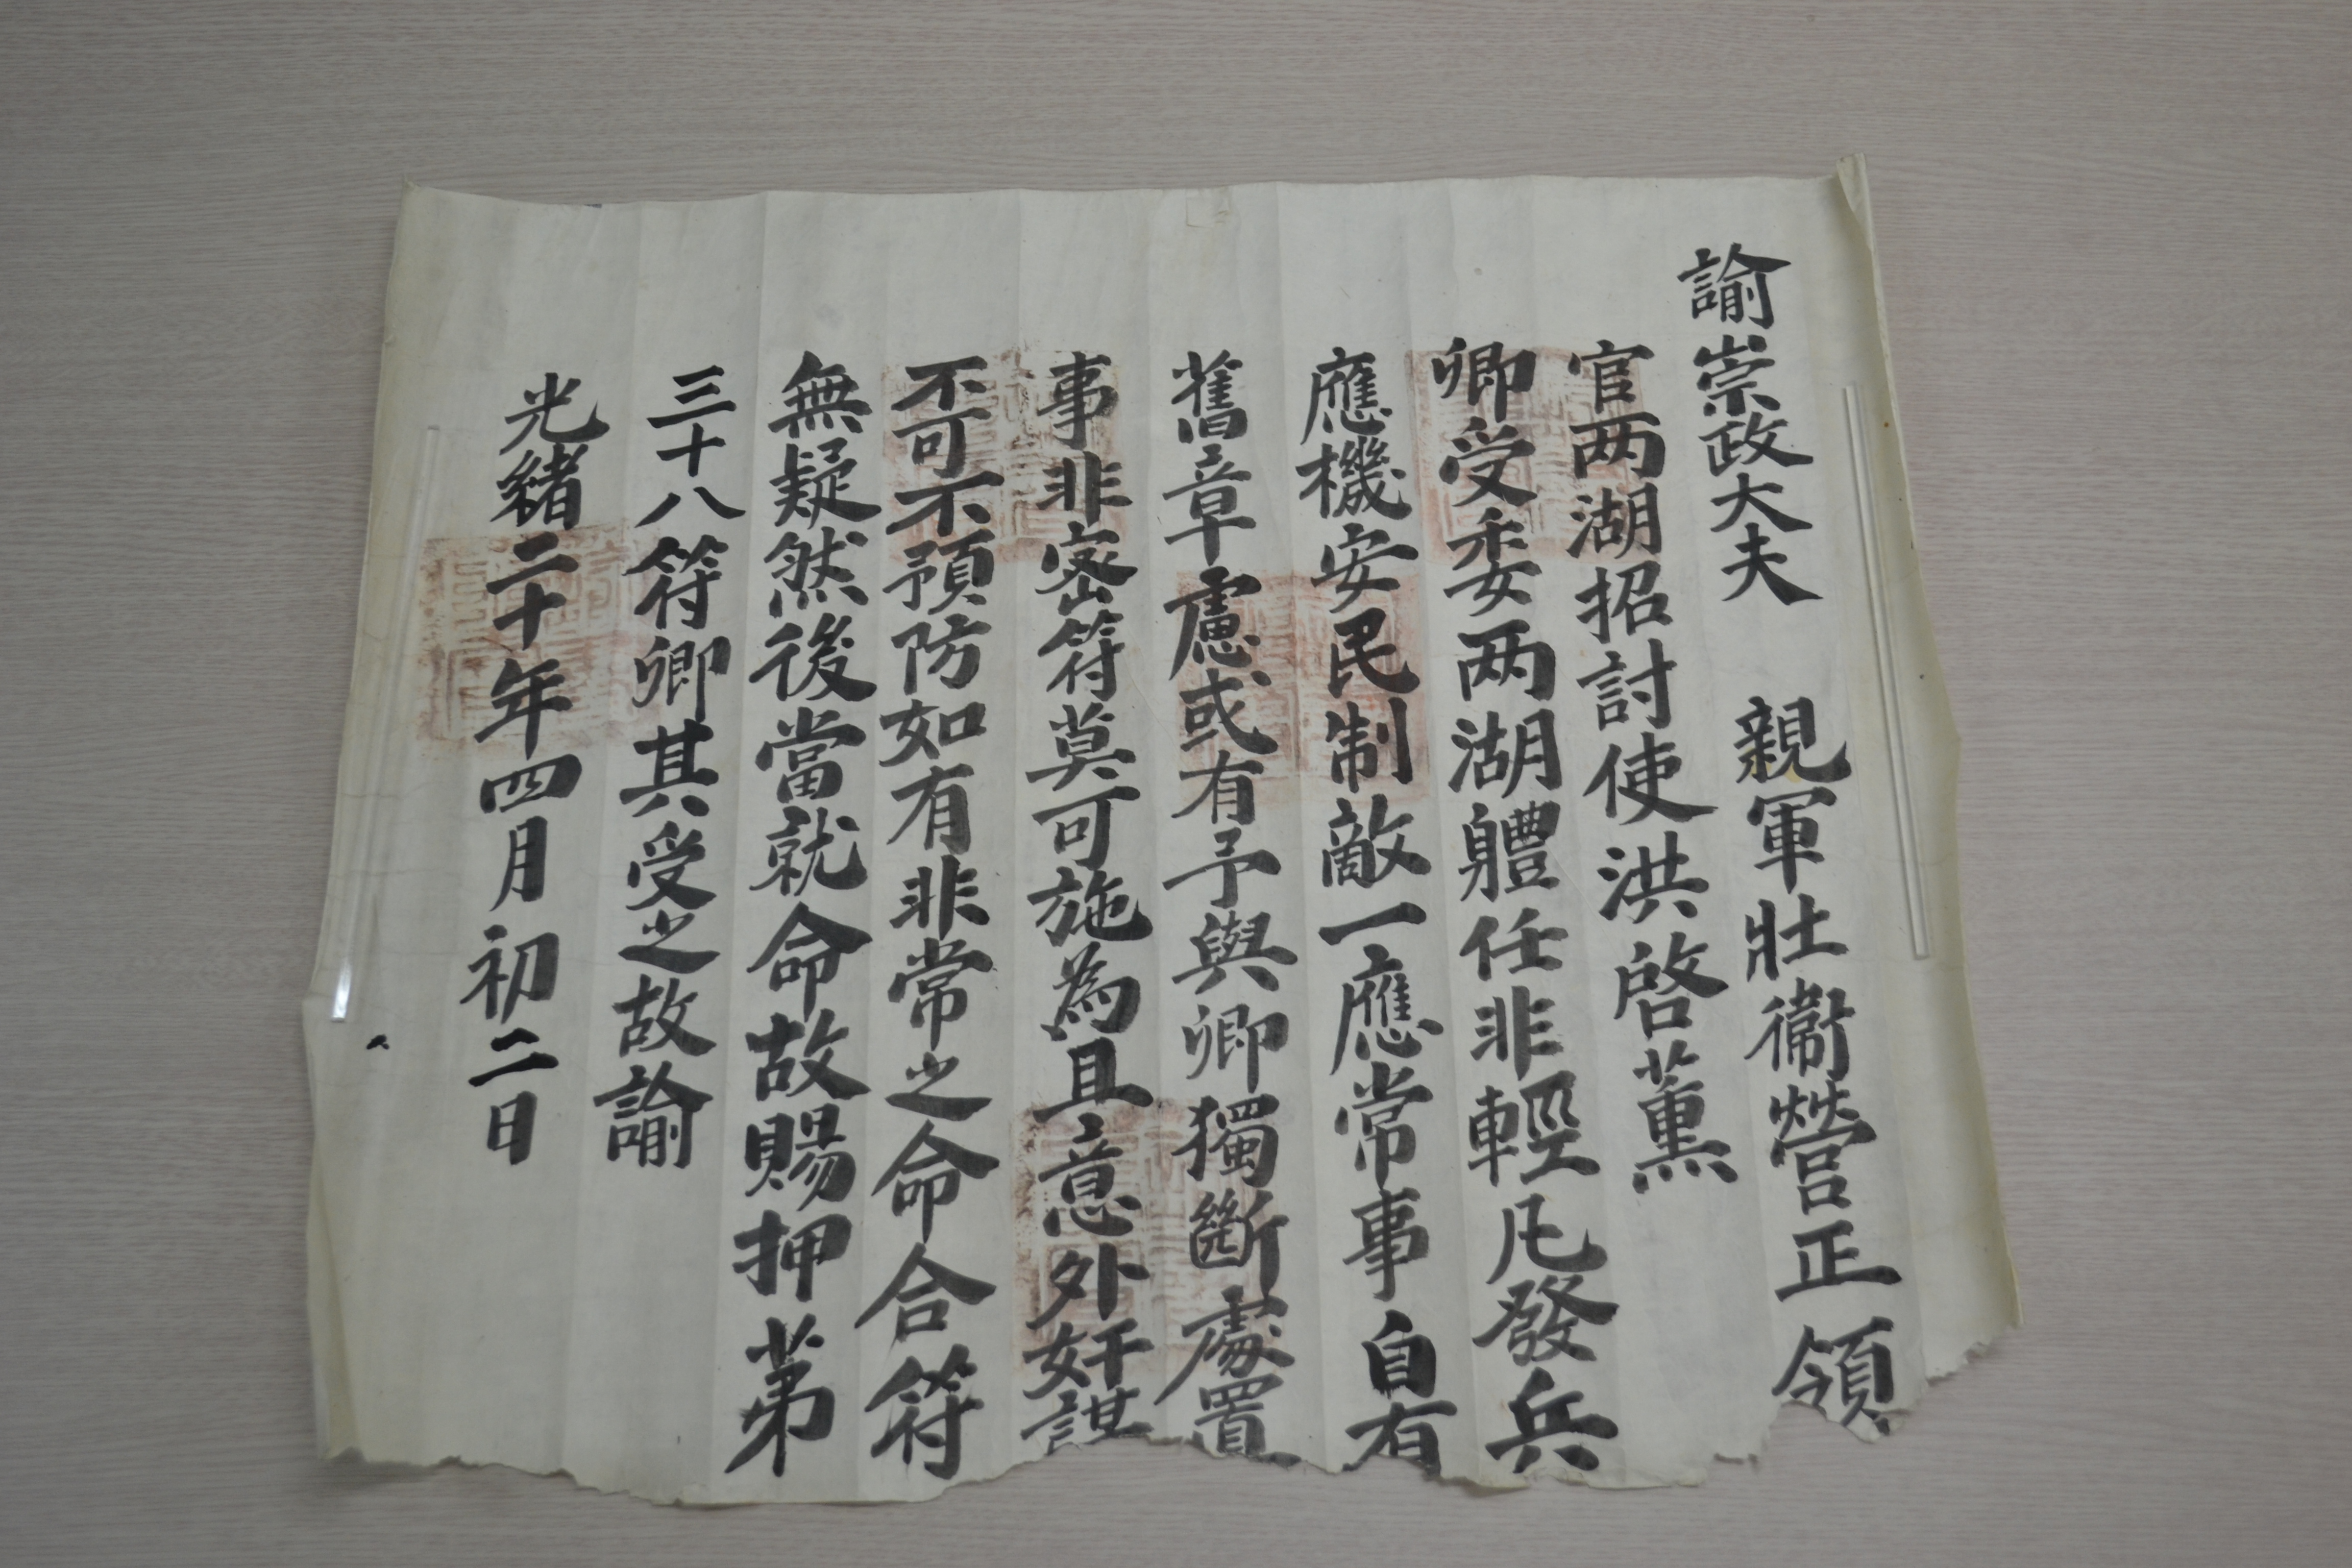 諭崇政大夫 親軍壯衞營正領
官两湖招討使洪啓薰
卿受委两湖軆任非輕凡發兵
應機安民制敵一應常事自有
舊章慮或有予與卿獨斷處置
事非密符莫可施為且意外奸謀
不可不預防如有非常之命合符
無疑然後當就命故賜押苐
三十八符卿其受之故諭
光緒二十年四月初二日